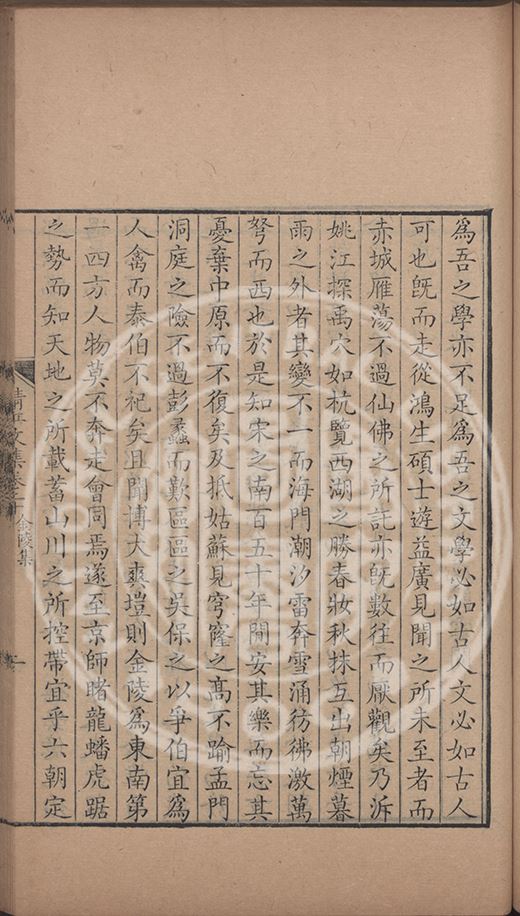 爲吾之學亦不足爲吾之文學必如古人文必如古人
可也旣而走從鴻生碩士遊益廣見聞之所未至者而
赤城雁蕩不過仙佛之所託亦旣數往而厭觀矣乃泝
姚江探禹穴如杭覽西湖之勝春妝秋抹互出朝煙暮
雨之外者其變不一而海門潮汐雷奔雪涌彷彿激萬
弩而西也於是知宋之南百五十年間安其樂而忘其
憂棄中原而不復矣及抵姑蘇見穹窿之髙不踰孟門
洞庭之險不過彭蠡而歎區區之吳保之以爭伯宜爲
人禽而泰伯不祀矣且聞博大爽塏則金陵爲東南第
一四方人物莫不奔走會同焉遂至京師睹龍蟠虎踞
之勢而知天地之所載蓄山川之所控帶宜乎六朝定
文集卷二十 金陵集